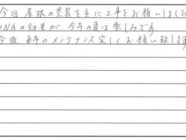 今回屋根の塗装を主に工事をお願いしまし
の効果が、今年の夏は楽しみです
今後共のメンテナンス宜しくお願い致します